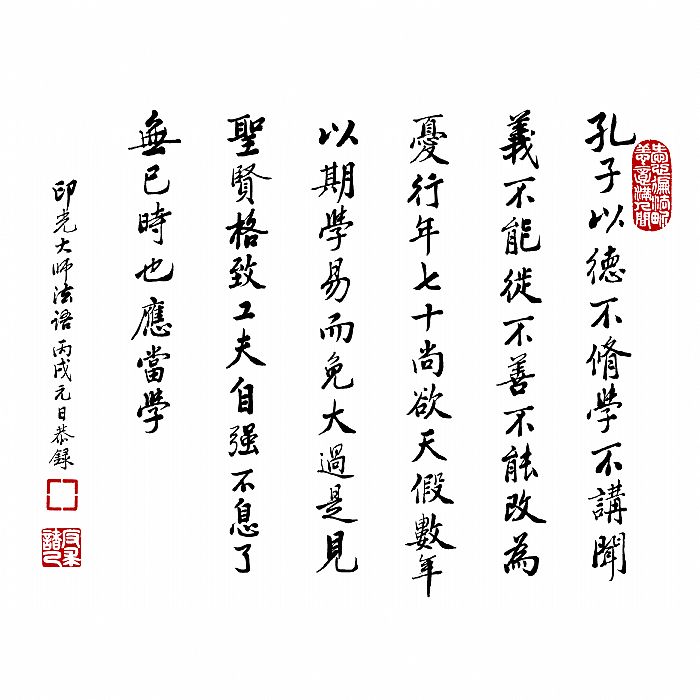 孔子以德不脩學不講聞
義不能徙不善不能改為
憂行年七十尚欲天假數年
以期學易而免大過是見
聖賢格致工夫自强不息了
無已時也應當學
印光大师法语丙戌元日恭録